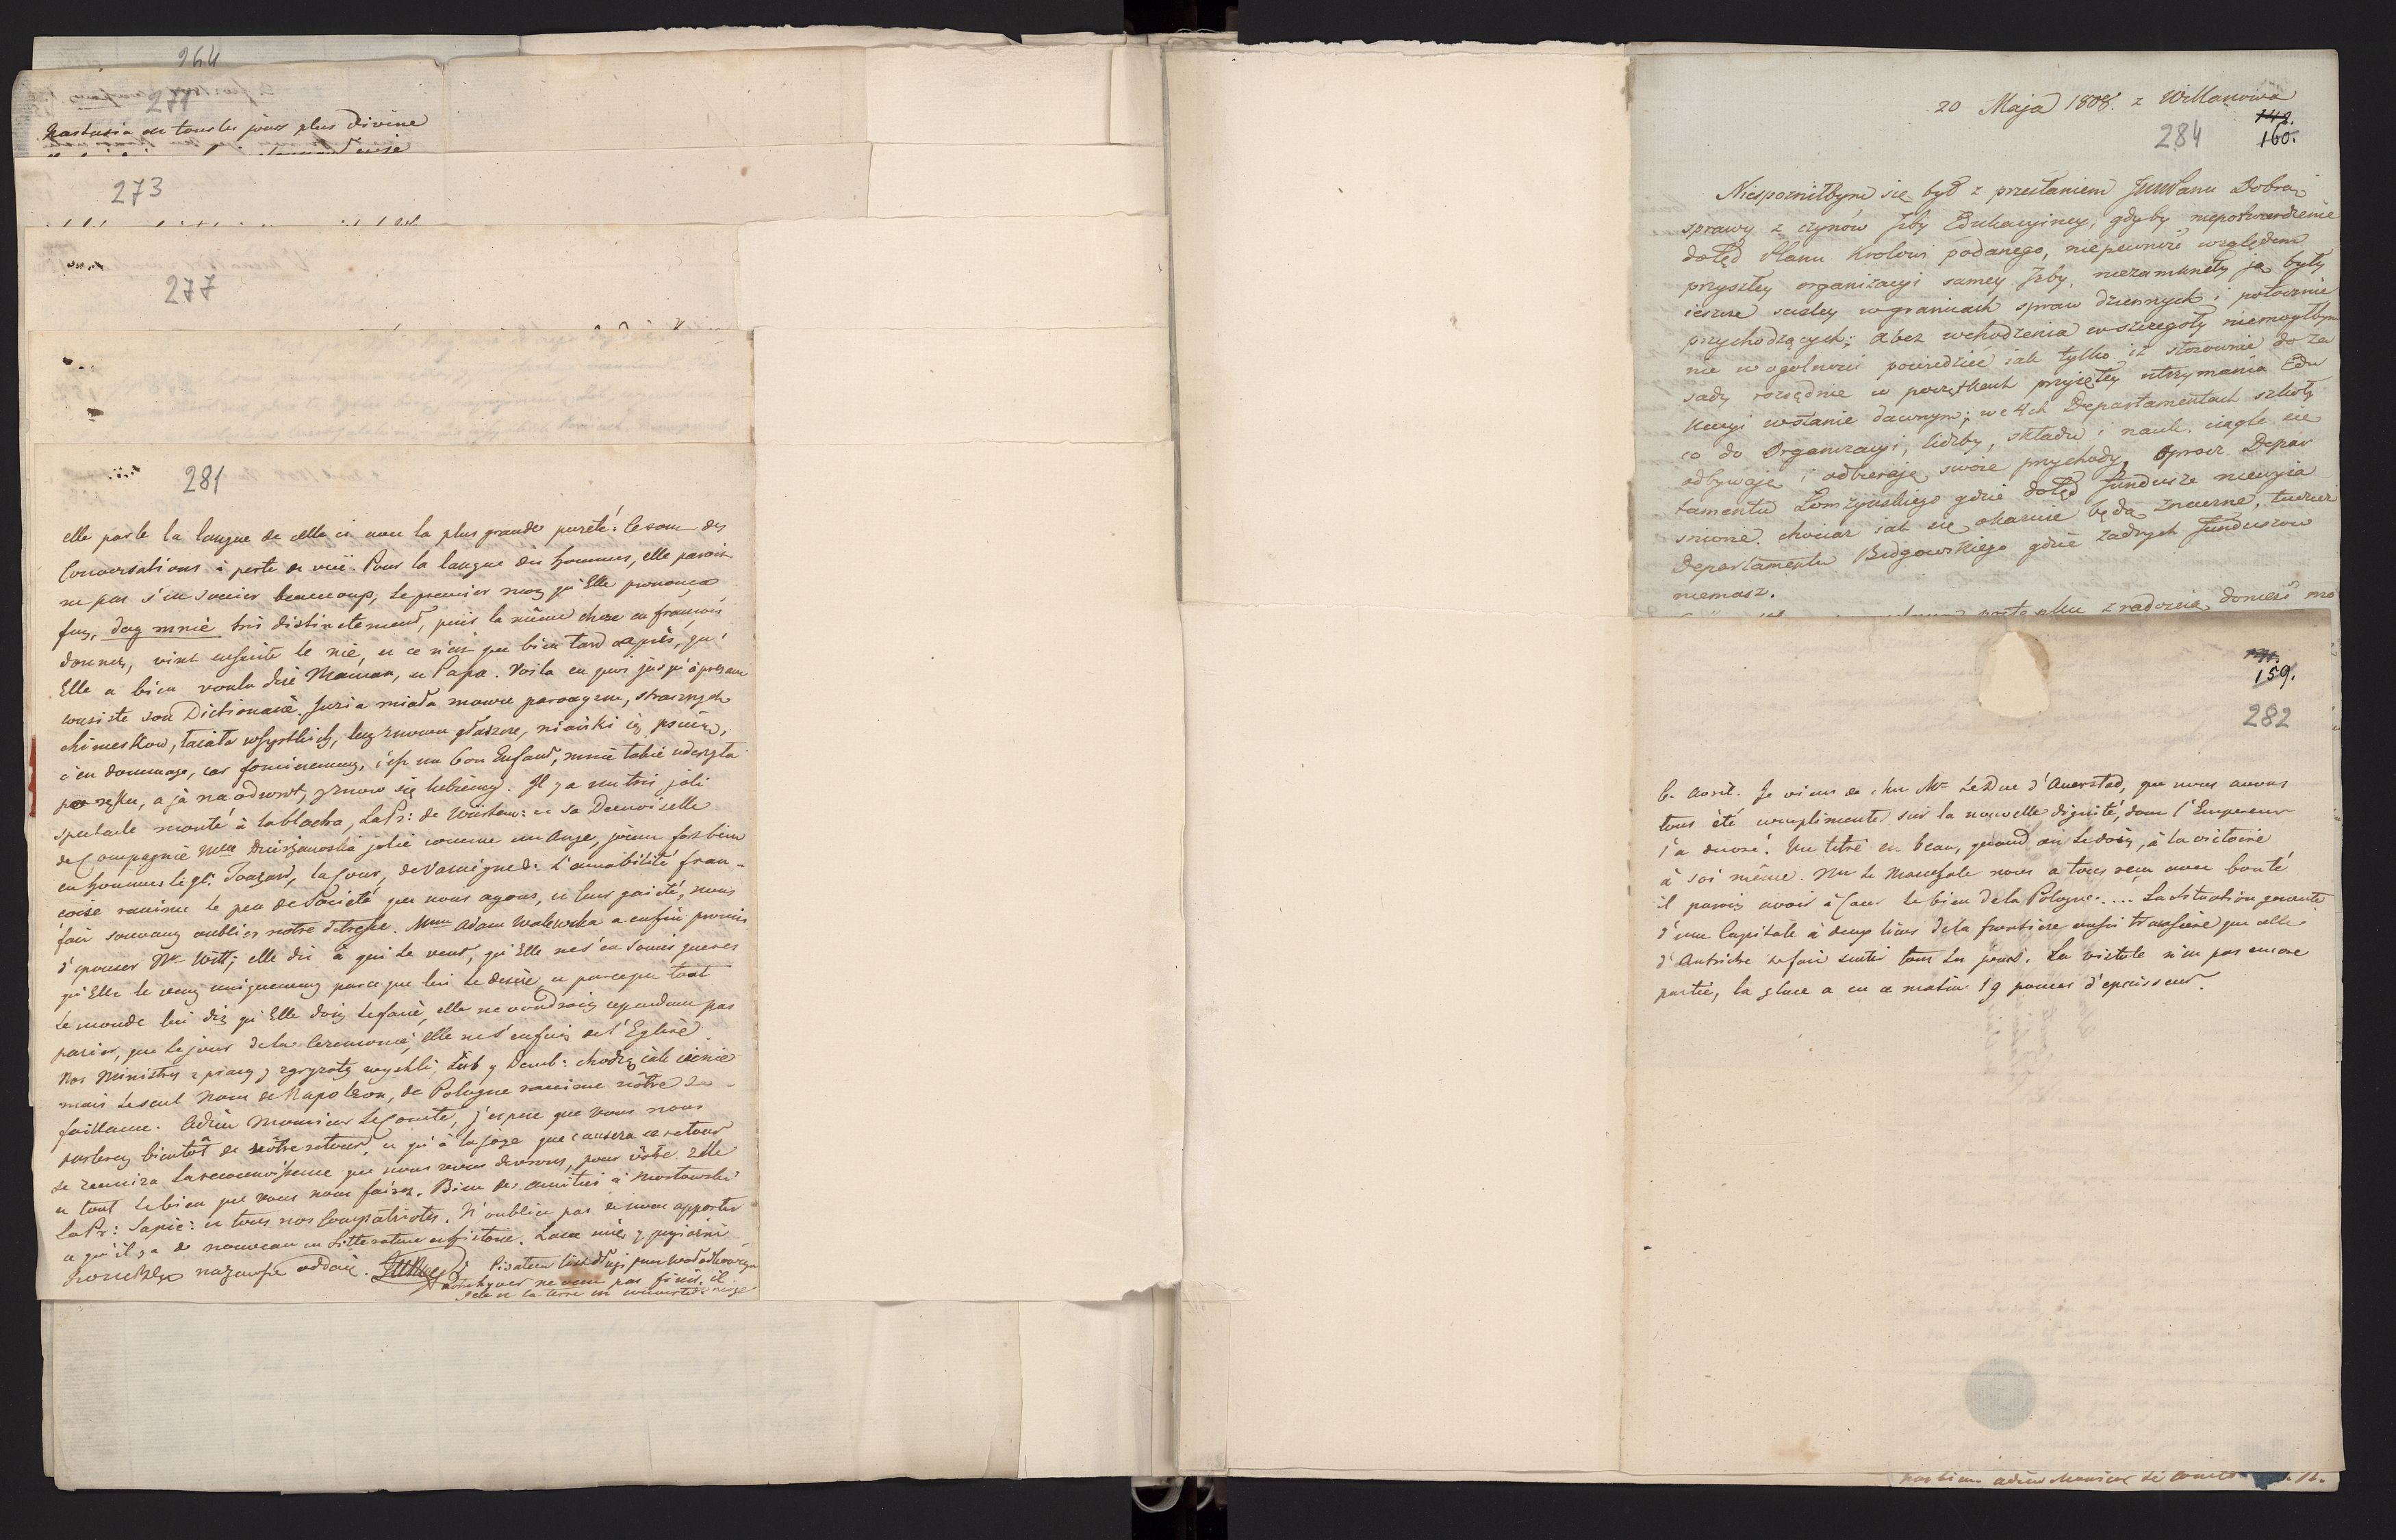 264
271
Nastusia est tous les jours plus divine
273
277
281
elle parle la langue de celle ci avec la plus grande pureté: ce sont des
Conversations à perte de vüe. Pour la langue des hommes, elle paroit
ne pas s'en soucier beaucoup, le premier mot qu'Elle prononça
fut, day mnie très distinctement, puis la même chose en françois
donnez, vint ensuite le nie, et ce n'est que bien tard après, qu'
Elle a bien voulu dire Maman, et Papa. Voila en quoi jusqu'à present
consiste son Dictionaire. Juzia miała nowe paroxyzm, strasznych
chimeskow, łaiała wszystkich, lecz znowu głaszcze, niańki ią psuią,
c'est dommage, car foncierement, c'est un bon Enfant, mnie także uderzyła
po ręku, a já na odwrot, y znow się lubiemy. Il y a un très joli
spectacle monté à la blacha, La Pr: de Würtem: et sa Demoiselle
de Compagnie Melle Dzierzanoska jolie comme un Ange, jouent fort bien
en hommes le Gl. Touzard, la Cour, de Vauigned: L'amabilité fran-
coise ranime le peu de Société que nous ayons, et leur gaieté, nous
fait souvent oublier notre detresse. Mme Adam Walewska a enfin promis
d'epouser Mr Witt; elle dit à qui le veut, qu'Elle ne s'en soucie gueres
qu'Elle le veut uniquement parce que lui le desire, et parceque tout
le monde lui dit qu'Elle doit le faire, elle ne voudroit cependant pas
parier, que le jour de la Ceremonie, elle ne s'enfuit de l'Eglise
Nos Ministres z piany y zgryzoty wyschli, Łub y Demb: chodzą iak cienie
mais le seul Nom de Napoleon, de Pologne ranime nôtre de-
faillance. Adieu Monsieur Le Comte, j'espere que vous nous
parlerez bientôt de vôtre retour, et qu'à la joye que causera ce retour
se reunira la reconnoissance que nous vous devrons, pour vôtre zèle
et tout le bien que vous nous faites. Bien des amitiés à Mostowski
La Pr: Sapie: et tous nos Compatriotes. N'oubliez pas de nous apporter
ce qu'il y a de nouveau en Litterature et histoire. Łasce mie y przyiaźni
na zawsze oddaię.
nôtre hyver ne veut pas finir, il
gele et la terre est couverte de neige
20 Maja 1808. z Willanowa
142.
160.
284
Niespoznilbym się był z przesłaniem JWWPanu Dobro.
sprawy z czynów Izby Edukacyiney, gdyby niepotwierdzenie
dotąd Planu Krolowi podanego, niepewność względem
przyszłey organizacyi samey Izby, niezamknęły ją były
ieszcze ścisley w granicach spraw dziennych i potocznie
przychodzących; a bez wchodzenia w szczegoły niemogłbym
nic w ogolności powiedzieć iak tylko iż stosownie do za
sady rozsądnie w początkach przyiętey utrzymania Edu
kacyi w stanie dawnym; w 4ch Departamentach szkoły
co do Organizacyi, liczby, składu i nauk. ciągle się
odbywaią i odbieraią swoie przychody, Oprocz Depar
tamentu Łomżynskiego gdzie dotąd Fundusze nieuyia
snione. chociaż iak się okazuie będą znaczne, tudzież
Departamentu Bidgowskiego gdzie żadnych Funduszow
niemasz.
z radością donieść mo
159.
282
6. Avril. Je viens de chez Mr Le Duc d'Auerstad, que nous avons
tous été complimenter sur la nouvelle dignité, dont l'Empereur
l'a decoré. Un titre est beau, quand on le doit, à la victoire
à soi même. Mr le Marechale nous a tous reçu avec bonté
il paroit avoir à Coeur le bien de la Pologne.... La Situation genante
d'une Capitale à deux lieues de la frontiere aussi tracassiere que celle
d'Autriche se fait sentir tous les jours. La Vistule n'est pas encore
partie, la glace a eu ce matin 19 pouces d'epaisseur.
adieu Monsieur Le Comte